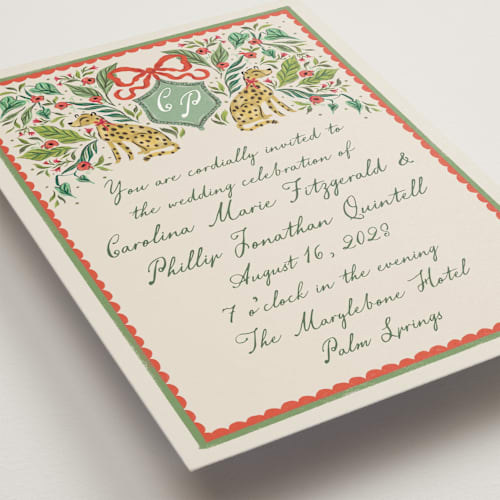 C P
You are cordially invited to
the wedding celebration of
Carolina Marie Fitzgerald &
Phillip Jonathan Quintell
August 16, 2023
7 o'clock in the evening
The Marylebone Hotel
Palm Springs